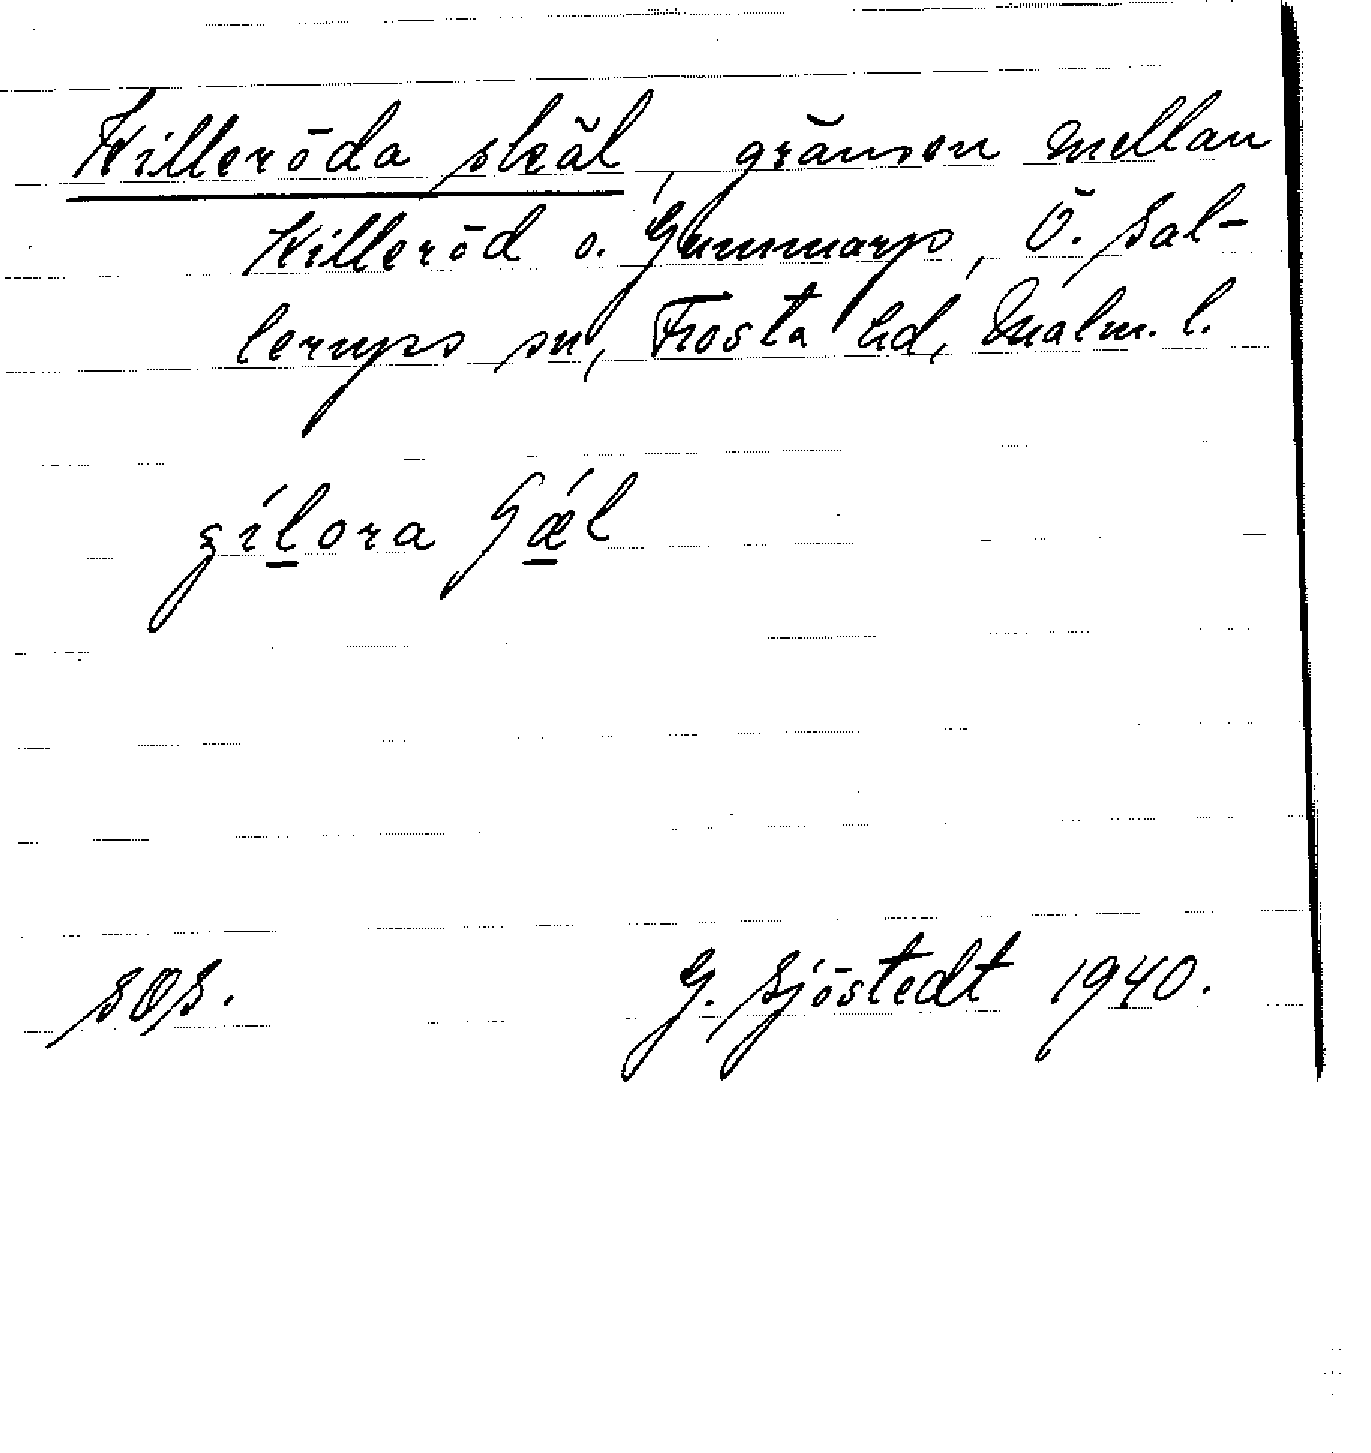 Killeröda skäl, gränsen mellan
Killeröd o. Gummarp, Ö. Sal-
lerups sn, Frosta hd, Malm. l.
G. Sjöstedt 1940.